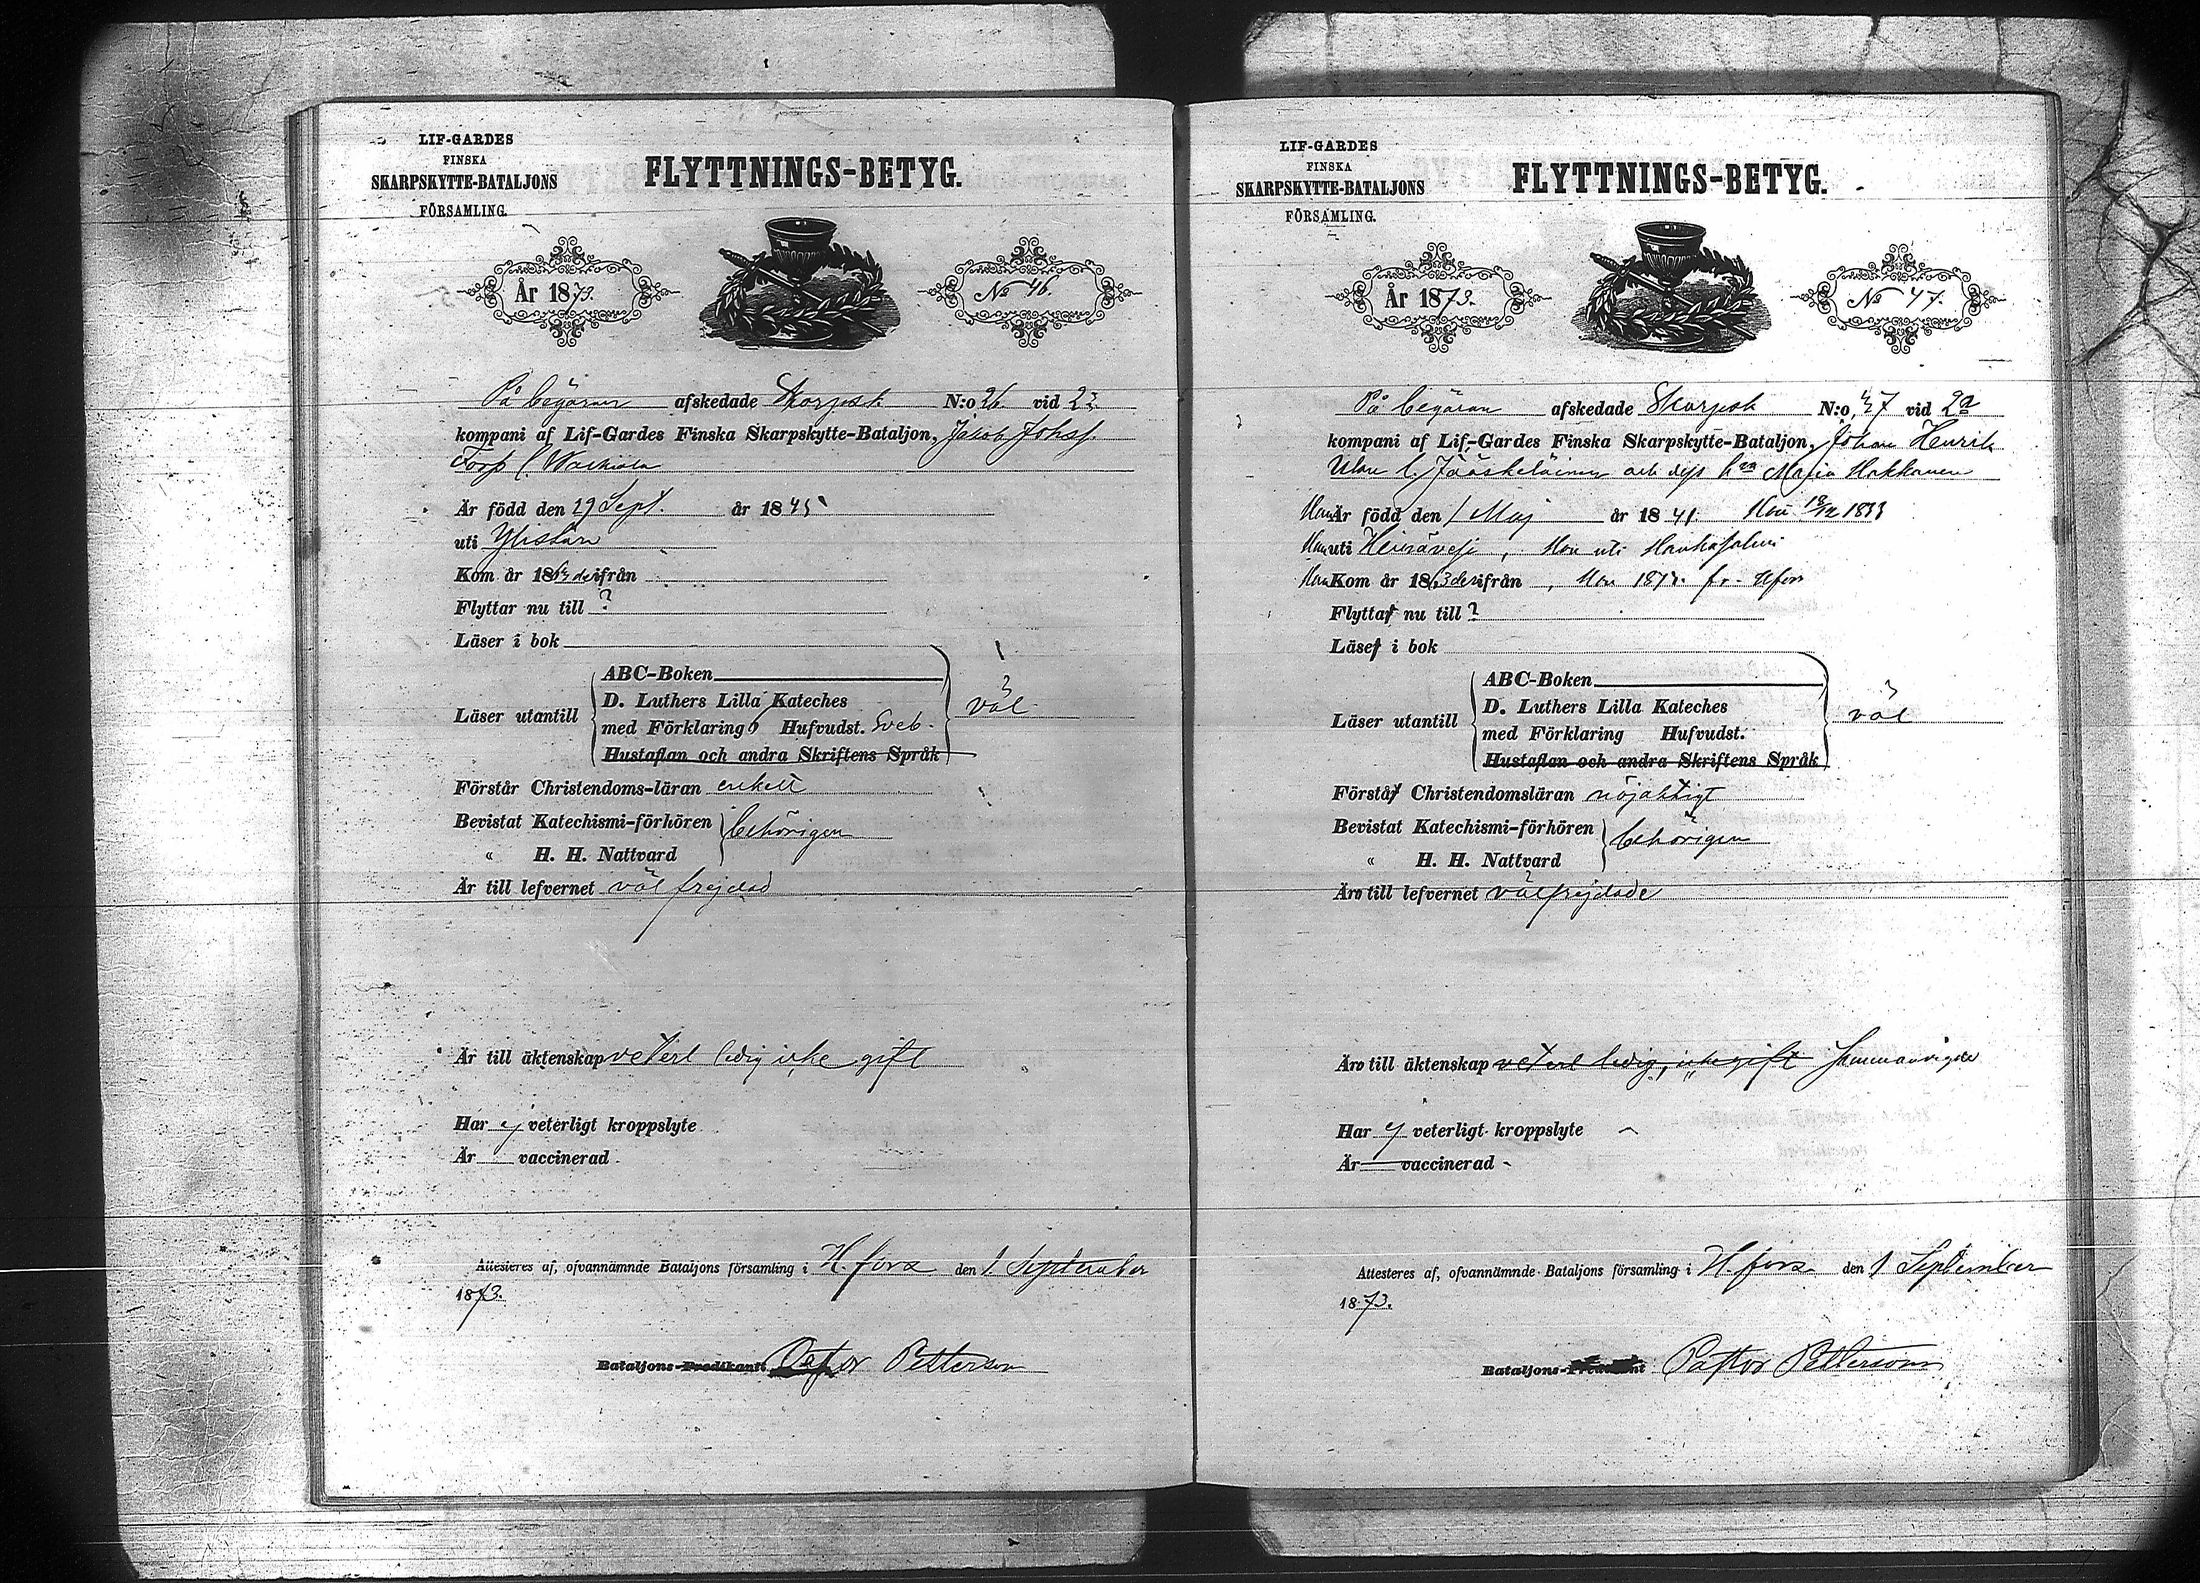 LIF-GARDES
FINSKA
SKARPSKYTTE-BATALJONS
FÖRSAMLING.
FLYTTNINGS-BETYG.
År 1873.
No 46.
På begäran afskedade Skarpsk. N:o 26 vid 2:
kompani af Lif-Gardes Finska Skarpskytte-Bataljon, Jakob Johsf.
Torp l.
Är född den 29 Sept. år 1845
uti Ylistaro
Kom år 186 derifrån
Flyttar nu till ?
Läser i bok
Läser utantill
ABC-Boken
D. Luthers Lilla Kateches
med Förklaring Hufvudst. Sveb.
Hustaflan och andra Skriftens Språk
väl
Förstår Christendoms-läran enkelt
Bevistat Katechismi-förhören
" H. H. Nattvard
behörigen
Är till lefvernet väl frejdad
Är till äktenskap veterl. ledig icke gift
Har ej veterligt kroppslyte
Är vaccinerad
Attesteres af, ofvannämnde Bataljons församling i H.fors den 1 September
1873.
Bataljons-Predikant. Pastor Petterson
LIF-GARDES
FINSKA
SKARPSKYTTE-BATALJONS
FÖRSAMLING.
FLYTTNINGS-BETYG.
År 1873.
No 47.
På begäran afskedade Skarpsk N:o 37 vid 2a
kompani af Lif-Gardes Finska Skarpskytte-Bataljon, Johan Henrik
l. Jääskeläinen och dess h:u Maria Hakkanen
Han Är född den 1 Maj år 1841. Hon 18/12 1833
Han uti Heinävesi, Hon uti Hankasalmi
Han Kom år 1863 derifrån, Hon 1873 fr. Hfors
Flyttar nu till ?
Läser i bok
Läser utantill
ABC-Boken
D. Luthers Lilla Kateches
med Förklaring Hufvudst.
Hustaflan och andra Skriftens Språk
väl
Förstår Christendomsläran nöjaktigt
Bevistat Katechismi-förhören
" H. H. Nattvard
behörigen
Äro till lefvernet välfrejdade
Äro till äktenskap veterl. ledig, icke gift sammanvigde
Har ej veterligt kroppslyte
Är vaccinerad
Attesteres af, ofvannämnde Bataljons församling i H.fors den 1 September
1873.
Bataljons-Predikant Pastor Petterson